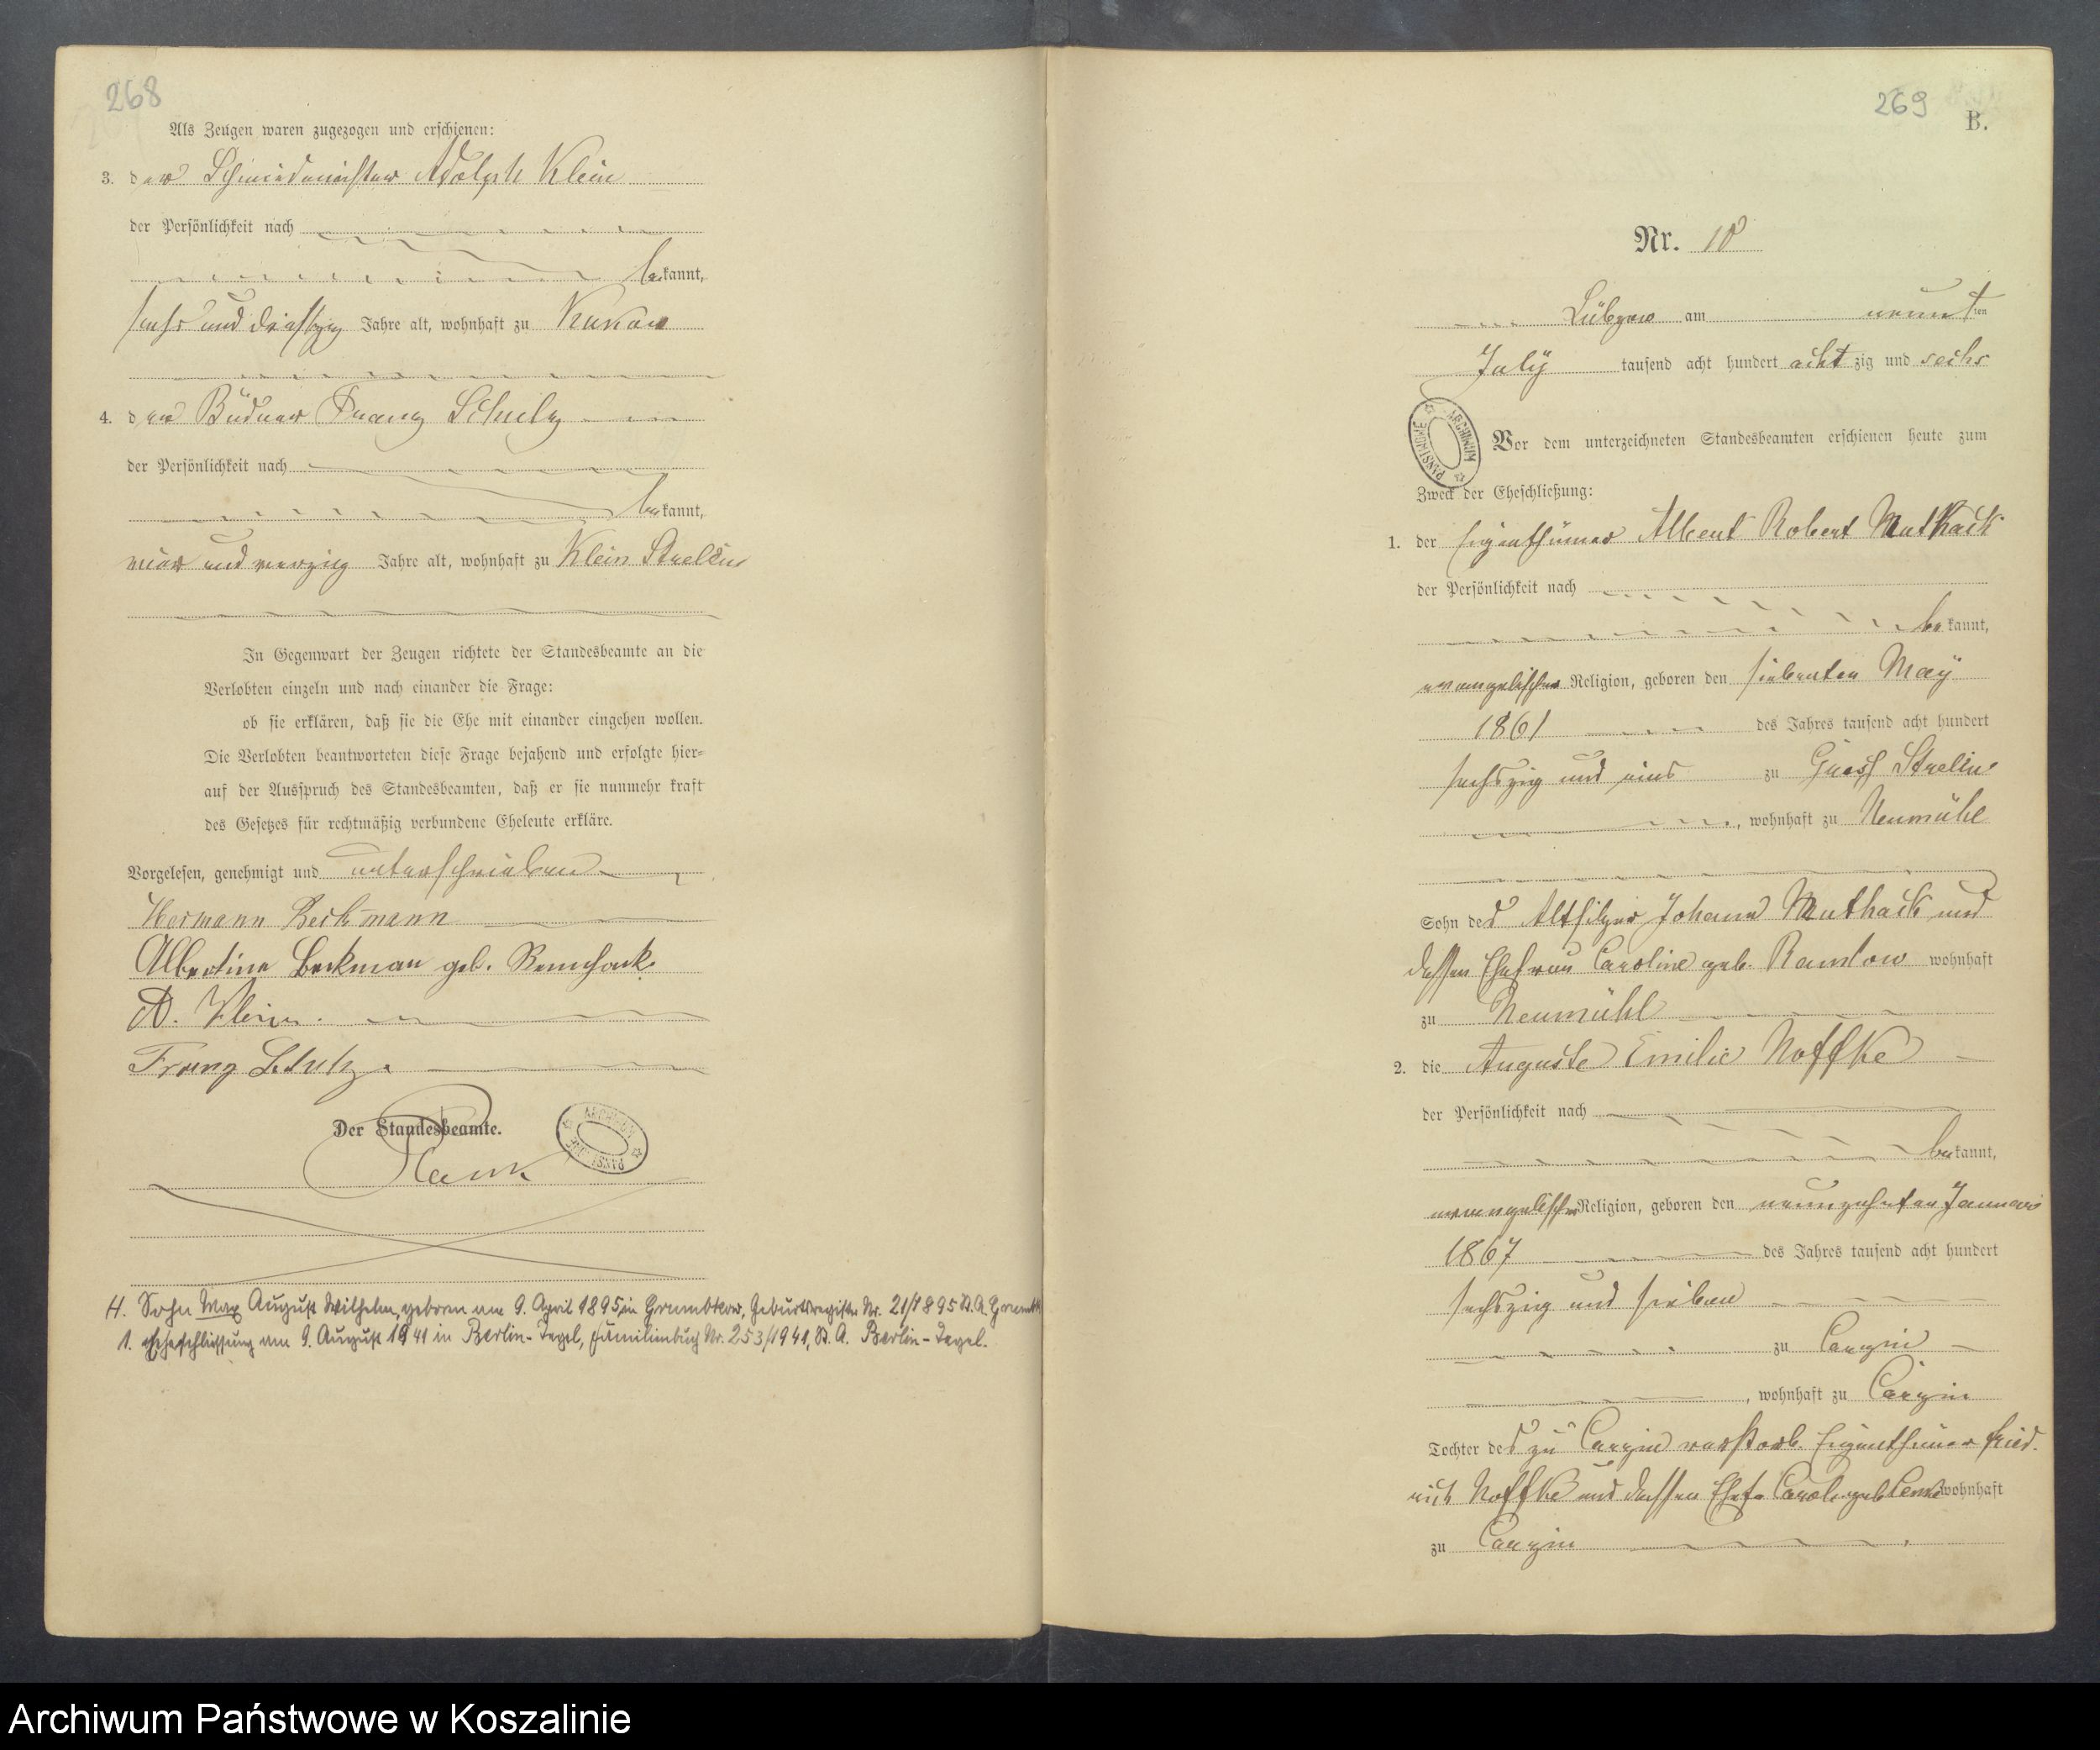 268
Als Zeugen waren zugezogen und erschienen:
3. der Schmiedemeister Adolph Klein
der Persönlichkeit nach
bekannt,
sechs und dreißzig Jahre alt, wohnhaft zu Kukow
4. der Büdner Franz Schulz
der Persönlichkeit nach
bekannt,
vier und vierzig Jahre alt, wohnhaft zu Klein Strellin
In Gegenwart der Zeugen richtete der Standesbeamte an die
Verlobten einzeln und nach einander die Frage:
ob sie erklären, daß sie die Ehe mit einander eingehen wollen.
Die Verlobten beantworteten diese Frage bejahend und erfolgte hier-
auf der Ausspruch des Standesbeamten, daß er sie nunmehr kraft
des Gesetzes für rechtmäßig verbundene Eheleute erkläre.
Vorgelesen, genehmigt und unterschrieben
Hermann Beckmann
Albertine Beckman geb.
A. Klein.
Franz Schulz.
Der Standesbeamte.
ARCHIWUM PAŃSTWOWE
H. Sohn Max August Wilhelm, geboren am 9. April 1895 in Grumbkow, Geburtsregister Nr. 21/1895 St. A.
1. Eheschliessung am 9. August 1941 in Berlin-Tegel, Familienbuch Nr. 253/1941, St. A. Berlin-Tegel.
269
B.
Nr. 10
Lübzow am neunten
July tausend acht hundert achtzig und sechs
ARCHIWUM PAŃSTWOWE
Vor dem unterzeichneten Standesbeamten erschienen heute zum
Zweck der Eheschließung:
1. der Eigenthümer Albert Robert Muthack
der Persönlichkeit nach
bekannt,
evangelischer Religion, geboren den siebenten May
1861 des Jahres tausend acht hundert
sechszig und eins zu Gross Strellin
, wohnhaft zu Neumühl
Sohn des Altsitzer Johann Muthack und
dessen Ehefrau Caroline geb. Ramlow wohnhaft
zu Neumühl
2. die Auguste Emilie Noffke
der Persönlichkeit nach
bekannt,
evangelischer Religion, geboren den neunzehnten Januar
1867 des Jahres tausend acht hundert
sechszig und sieben
zu Carzin
, wohnhaft zu Carzin
Tochter des zu Carzin verstorb. Eigenthümer Fried.
rich Noffke und dessen Ehefr. Carol. geb. wohnhaft
zu Carzin
Archiwum Państwowe w Koszalinie